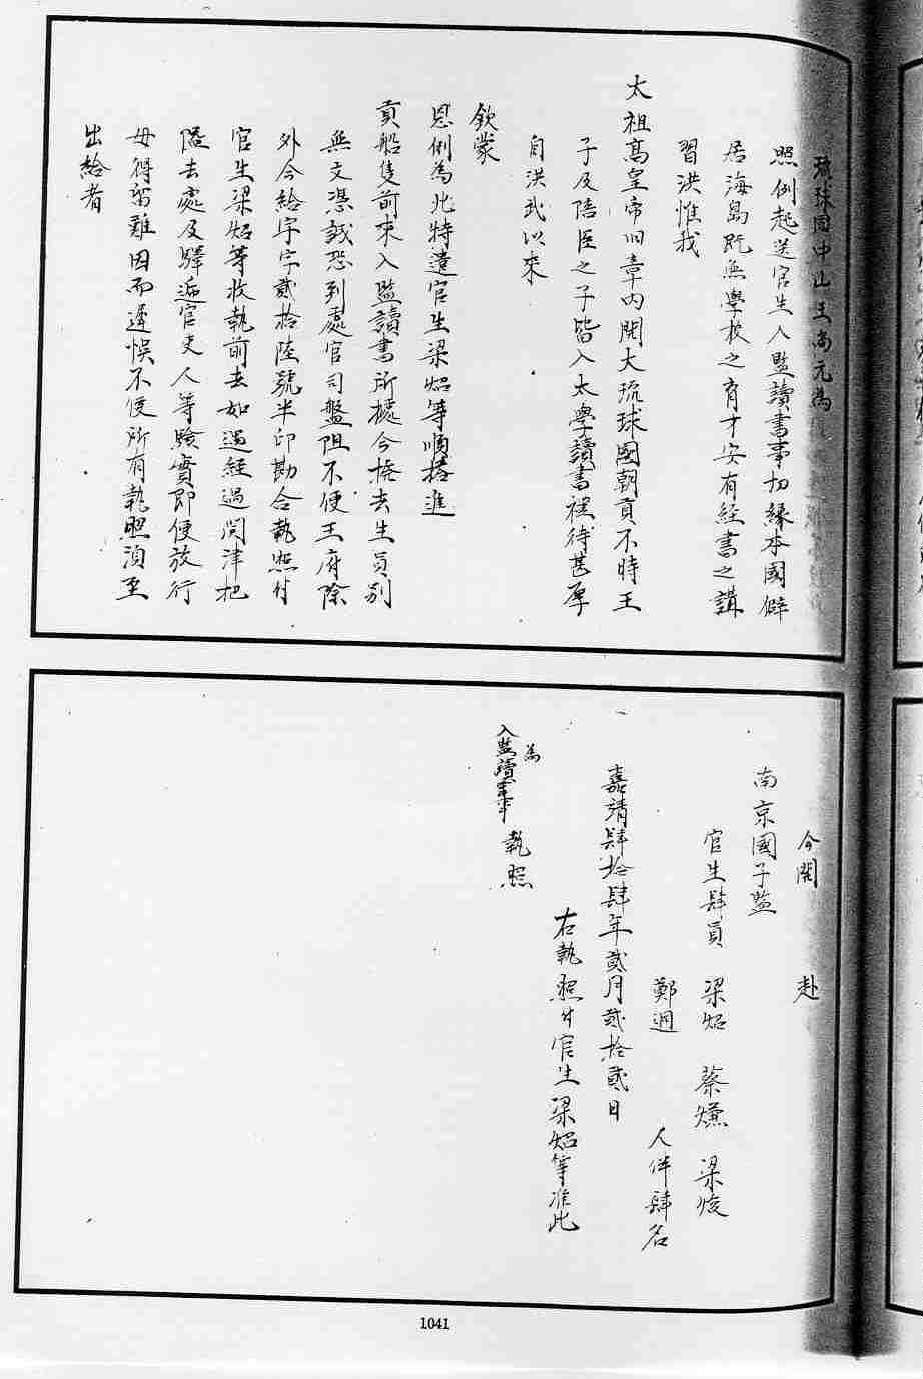 琉球國中山王尚元為
照例起送官生入監讀書事切緣本國僻
居海島既無學校之育才安有経書之講
習洪惟我
太祖高皇帝旧章内開大琉球國朝貢不時王
子及陪臣之子皆入太學讀書禮待甚厚
自洪武以来
欽蒙
恩例為此特遣官生梁炤等順搭進
貢船隻前来入監讀書所據今撥去生員別
無文憑誠恐到處官司盤阻不便王府除
外今給宇字貳拾陸號半印勘合執照付
官生梁炤等收執前去如遇経過関津把
隘去處及驛逓官吏人等驗實即便放行
毋得留難因而遲悞不便所有執照湏至
出給者
今開 赴
南京國子監
官生肆員 梁炤 蔡燫 梁焌
鄭迵 人伴肆名
嘉靖肆拾肆年貳月貳拾貳日
右執照付官生梁炤等准此
為
入監讀書事 執照
1041